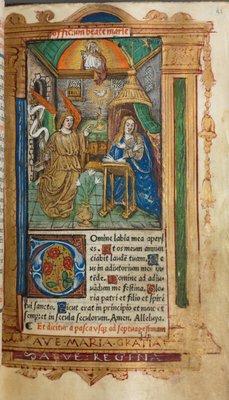 Officium beate marie
Domine labia mea aperi
es. Et os meum annun
ciabit laudē tuam. De
us in adiutorium meū in
tēde. Domine ad adiu
uādum me festina. Gloria
patri et filio et spiri
tui sancto. Sicut erat in principio et nunc et
semper et in secula seculorum. Amen. Alleluya.
Et dicitur a pasca usq; ad septuagesimam
AVE·MARIA·GRATIA
SALVE·REGINA